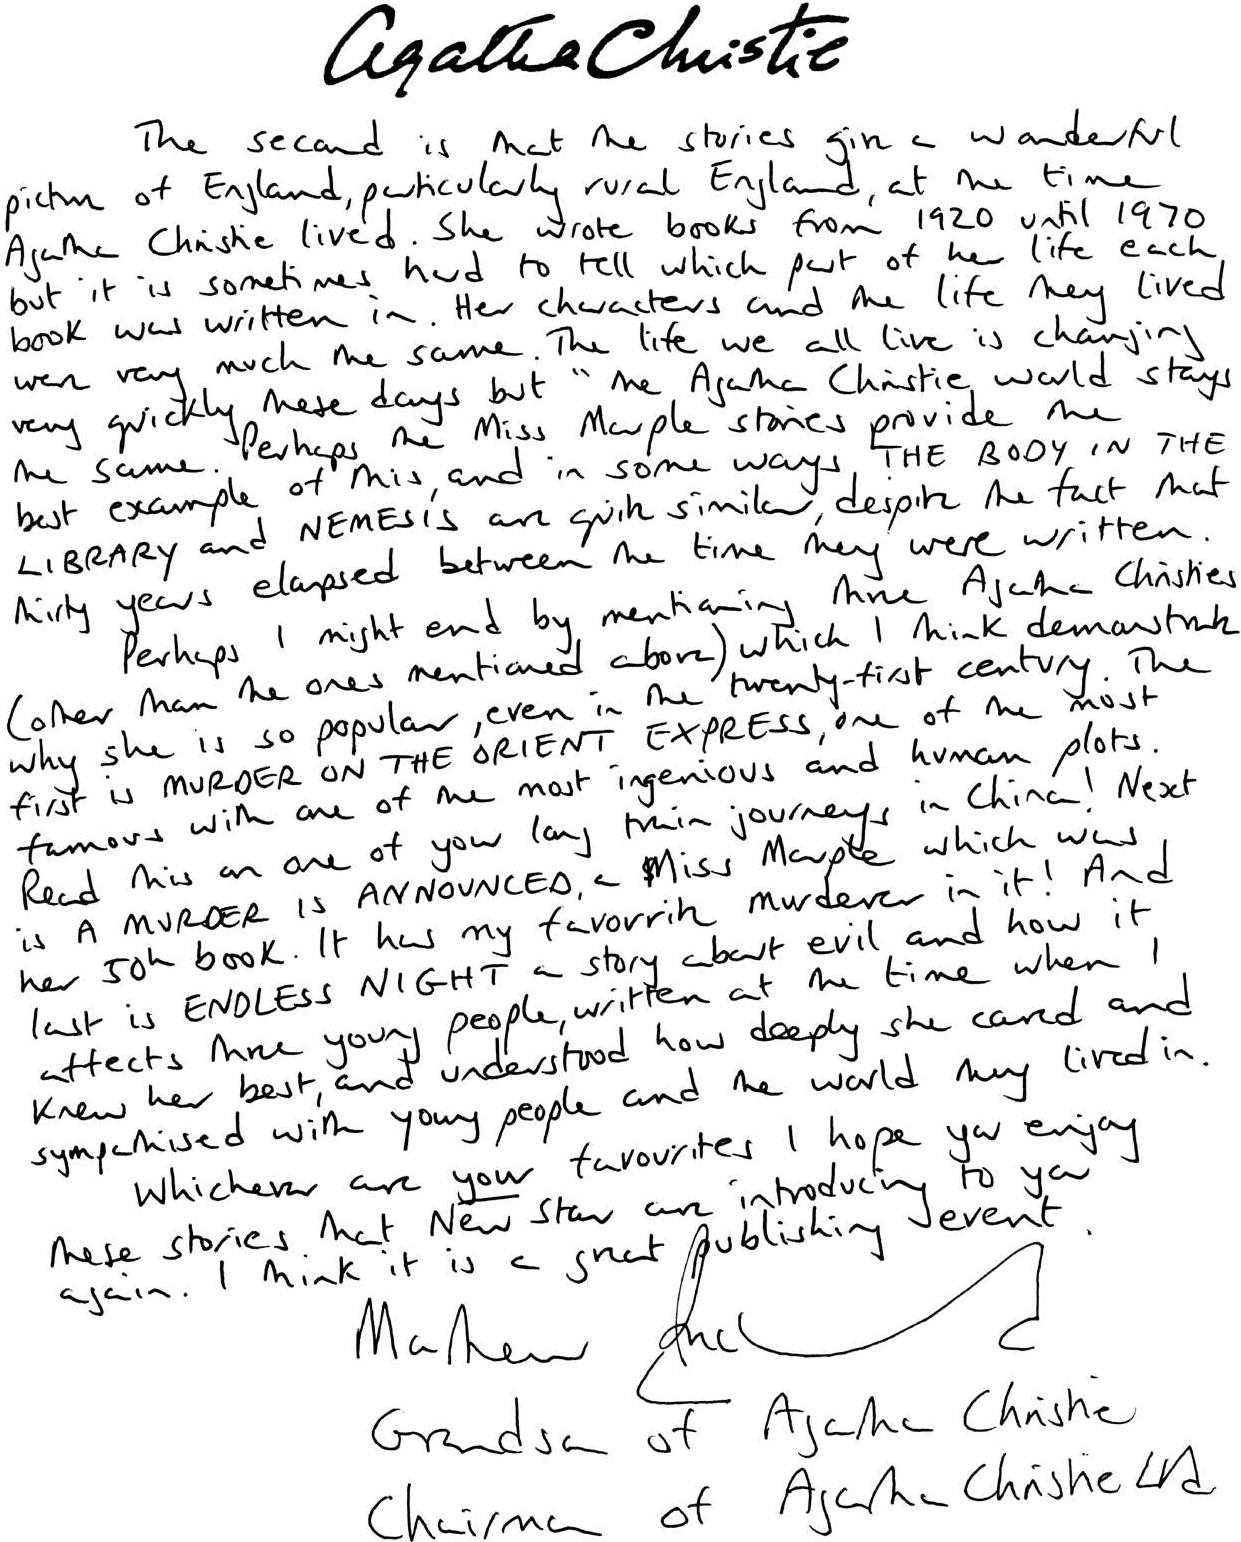 Agatha Christie
The second is that the stories give a wonderful
picture of England, particularly rural England, at the time
Agatha Christie lived. She wrote books from 1920 until 1970
but it is sometimes hard to tell which part of her life each
book was written in. Her characters and the life they lived
were very much the same. The life we all live is changing
very quickly these days but "the Agatha Christie world stays
the same. Perhaps the Miss Marple stories provide the
best example of this, and in some ways THE BODY IN THE
LIBRARY and NEMESIS are quite similar, despite the fact that
thirty years elapsed between the time they were written.
Perhaps I might end by mentioning three Agatha Christies
(other than the ones mentioned above) which I think demonstrate
why she is so popular, even in the twenty-first century. The
first is MURDER ON THE ORIENT EXPRESS, one of the most
famous with one of the most ingenious and human plots.
Read this on one of your long train journeys in China! Next
is A MURDER IS ANNOUNCED, a Miss Marple which was
her 50th book. It has my favourite murderer in it! And
last is ENDLESS NIGHT a story about evil and how it
affects three young people, written at the time when I
knew her best, and understood how deeply she cared and
sympathised with young people and the world they lived in.
Whichever are your favourites I hope you enjoy
these stories that New Star are introducing to you
again. I think it is a great publishing event.
Mathew
Grandson of Agatha Christie
Chairman of Agatha Christie Ltd